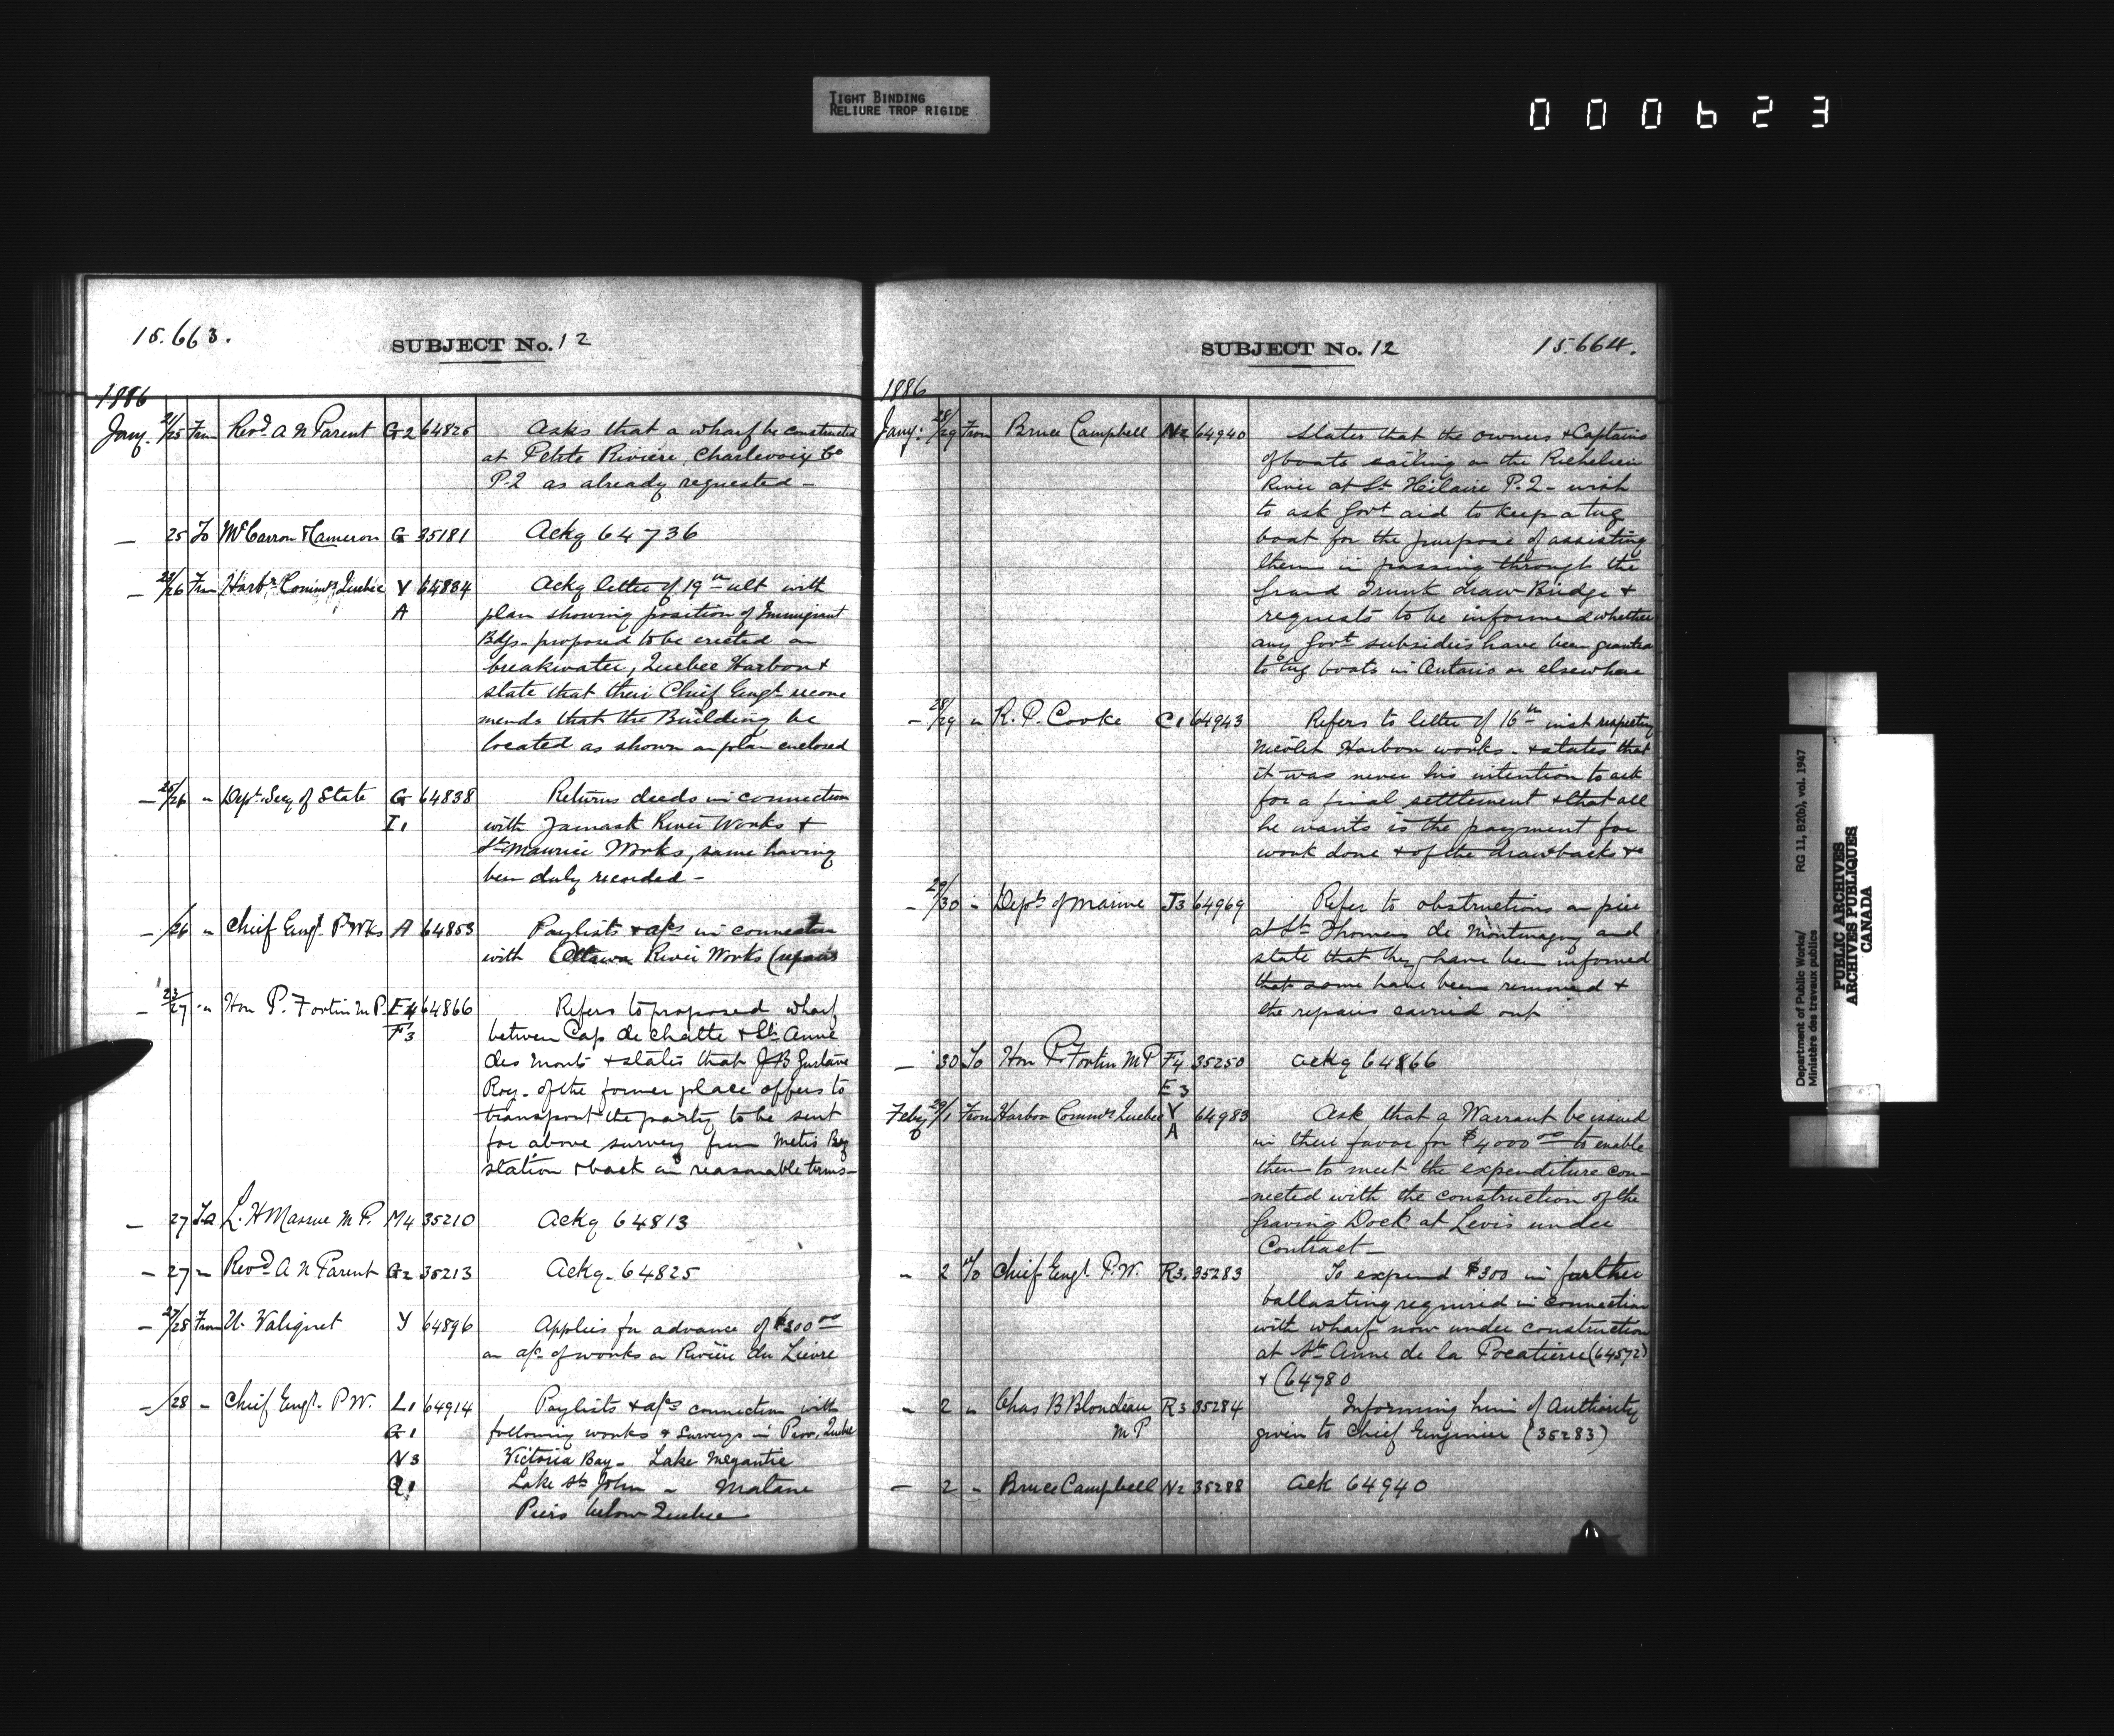 TIGHT BINDING
RELIURE TROP RIGIDE
000623
15.663.
SUBJECT No. 12
1886
Jany. 21/25 From Revd. A N Parent G2 64825 Asks that a wharf be constructed
at Petite Riviere, Charlevoix Co
P.Q as already requested -
- 25 To McCarron & Cameron G 35181 Ackg 64736
- 23/26 From Harbr. Commrs. Quebec Y 64834 Ackg letter of 19th ult with
A plan showing position of Immigrant
Bdgs. proposed to be erected on
breakwater, Quebec Harbour &
state that their Chief Engr. recom
mends that the Building be
located as shown on plan enclosed
- 25/26 " Dept. Secy of State G 64838 Returns deeds in connection
I1 with Yamaska River Works &
St. Maurice Works, same having
been duly recorded -
- /26 " Chief Engr. P Wks A 64853 Paylists & a/cs in connection
with Ottawa River Works (repairs
- 23/27 " Hon P. Fortin M.P. E4 64866 Refers to proposed wharf
F3 between Cap de Chatte & Ste Anne
des Monts & states that J B Gustave
Roy. of the former place offers to
transport the party to be sent
for above survey from Metis Ry
station & back on reasonable terms -
- 27 To L. H Massue M P. M4 35210 Ackg 64813
- 27 " Revd. A N Parent G2 35213 Ackg. 64825
- 27/28 From U. Valiquet Y 64896 Applies for advance of $300 00
on a/c of works on Rivière du Lievre
- /28 - Chief Engr. P W. L1 64914 Paylists & a/cs connection with
G1 following works & Surveys in Prov. Quebec
N3 Victoria Bay - Lake Megantic
Q1 Lake St. John - Matane
Piers below Quebec
SUBJECT No. 12
15.664.
1886
Jany: 28/29 From Bruce Campbell N2 64940 States that the owners & Captains
of boats sailing on the Richelieu
River at St. Hilaire P.Q - wish
to ask Govt aid to keep a tug
boat for the purpose of assisting
them in passing through the
Grand Trunk draw Bridge &
requests to be informed whether
any Govt subsidies have been granted
to tug boats in Ontario or elsewhere
- 28/29 " R. P. Cooke C1 64943 Refers to letter of 16th inst respecting
Nicolet Harbor works - & states that
it was never his intention to ask
for a final settlement & that all
he wants is the payment for
work done & of the drawbacks &c
- 29/30 - Dept. of Marine J3 64969 Refer to obstructions on pier
at St. Thomas de Montmagny and
state that they have been informed
that same have been removed &
the repairs carried out
- 30 To Hon P. Fortin M P F4 35250 ackg 64866
E3
Feby 29/1 From Harbor Commrs Quebec Y 64983 Ask that a Warrant be issued
A in their favor for $4000 00 to enable
them to meet the expenditure con-
-nected with the construction of the
Graving Dock at Levis under
Contract -
- 2 To Chief Engr. P.W. R3. 35283 To expend $300 in further
ballasting required in connection
with wharf now under construction
at Ste Anne de la Pocatiere (64572)
& (64780
- 2 " Chas B Blondeau R3 35284 Informing him of Authority
M P given to Chief Engineer (35283)
- 2 - Bruce Campbell N2 35288 Ack 64940
Department of Public Works/
Ministère des travaux publics
RG 11, B2(b), vol. 1947
PUBLIC ARCHIVES
ARCHIVES PUBLIQUES
CANADA